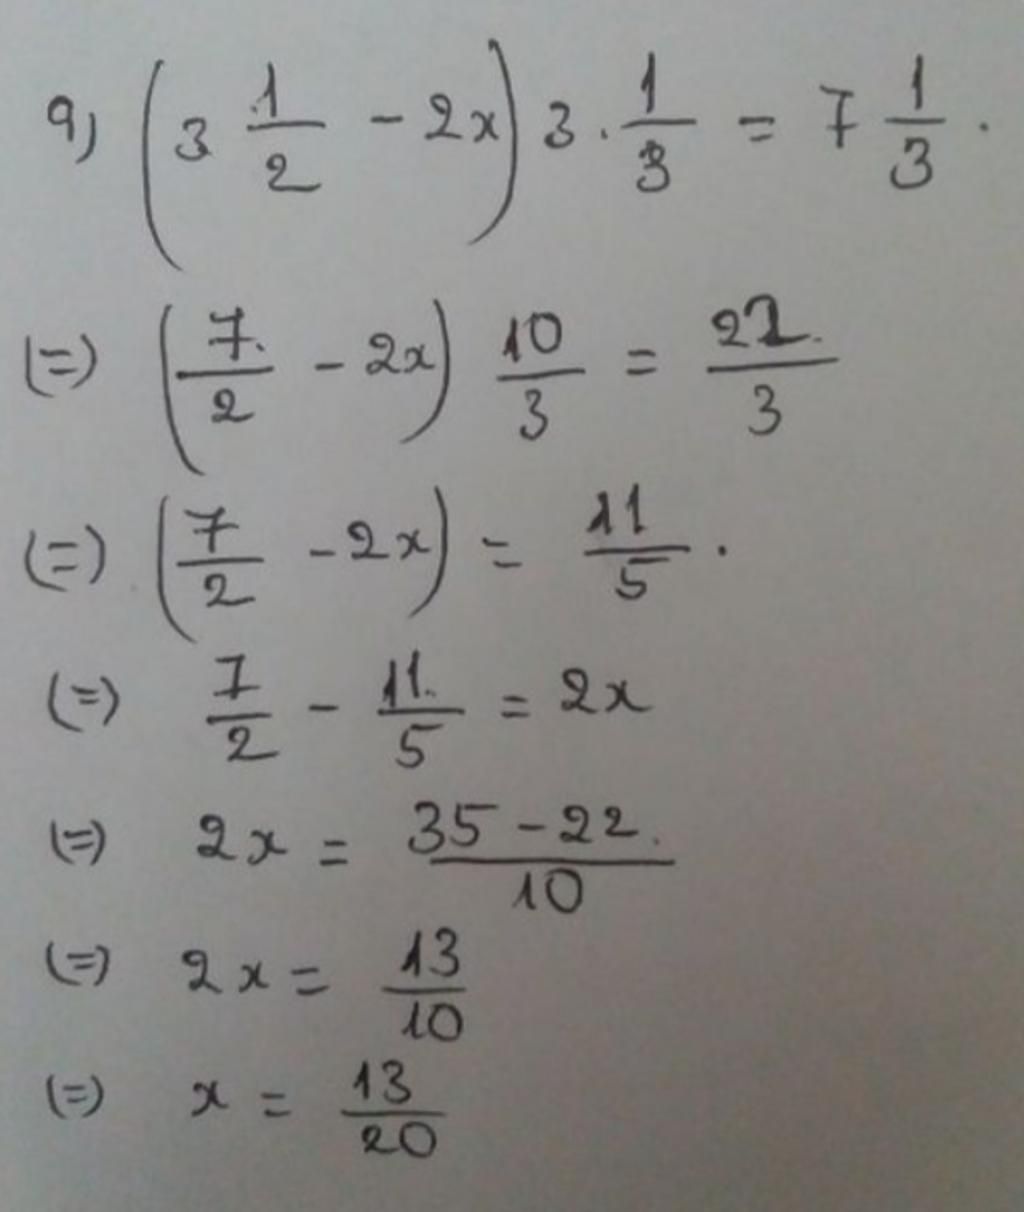 a) (3 1/2 - 2x) 3 . 1/3 = 7 1/3 .
(=) (7/2 - 2x) 10/3 = 22/3
(=) (7/2 - 2x) = 11/5 .
(=) 7/2 - 11/5 = 2x
(=) 2x = (35 - 22)/10
(=) 2x = 13/10
(=) x = 13/20